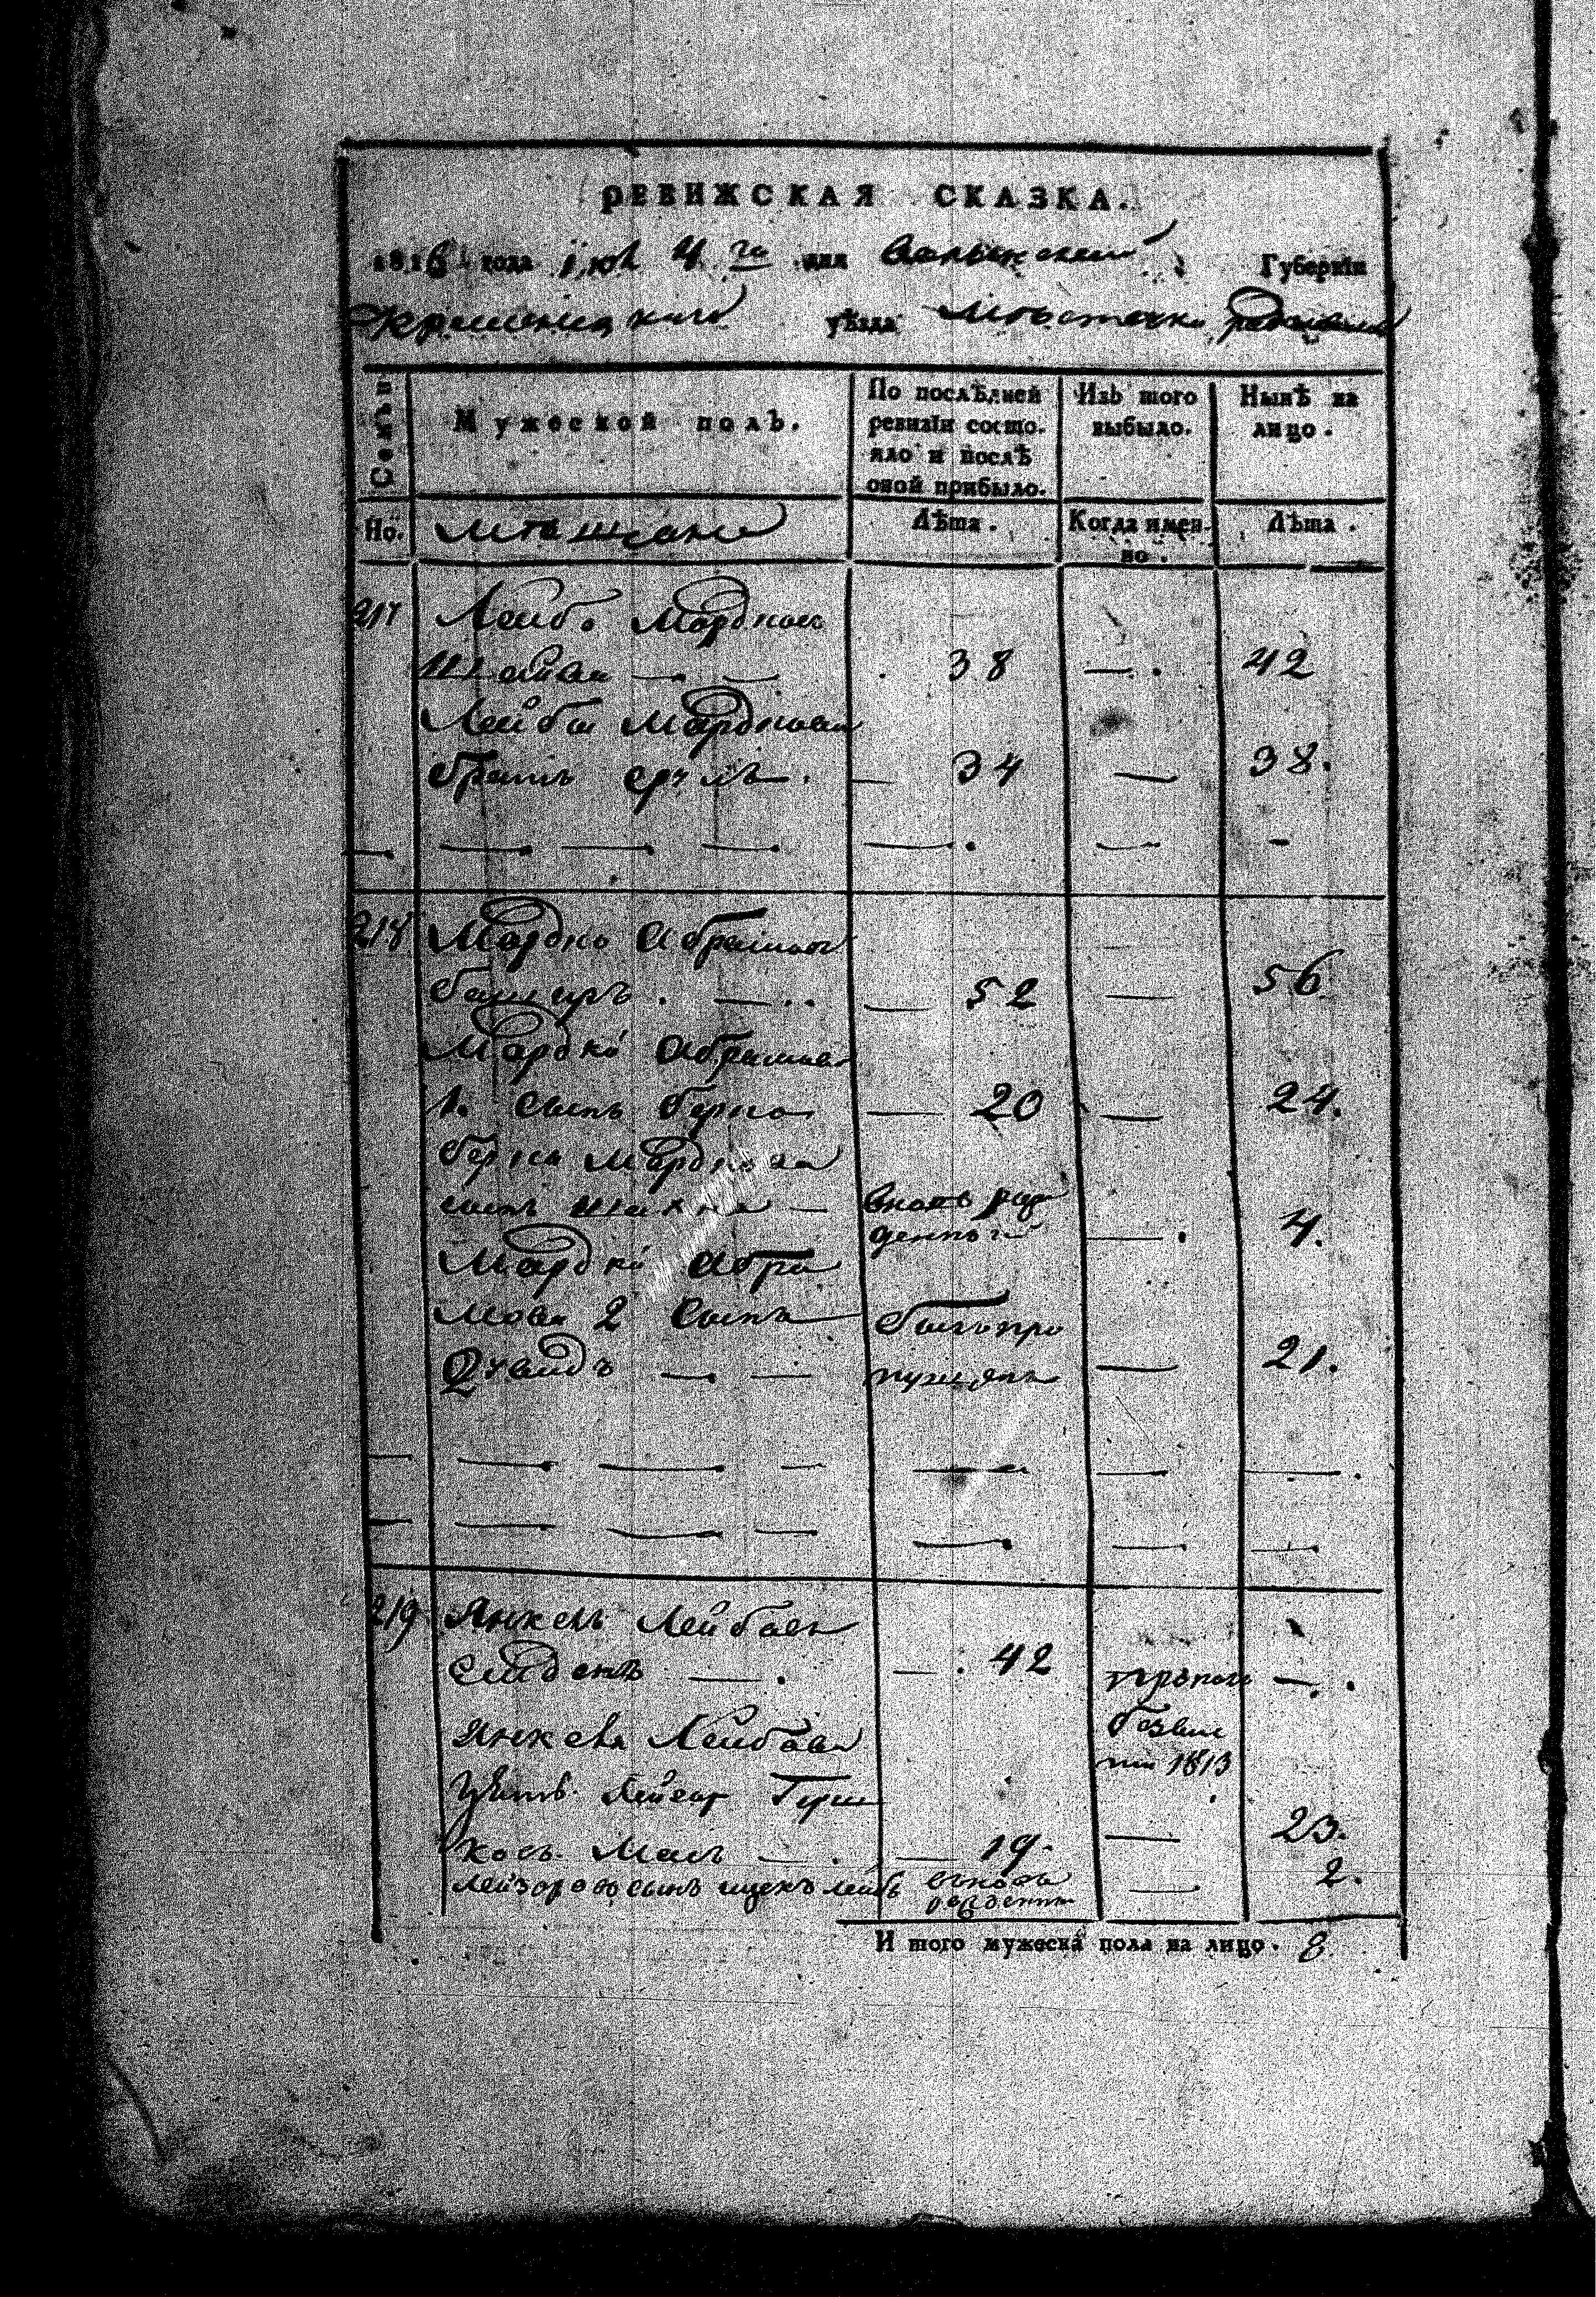 РЕВИЖСКАЯ СКАЗКА.
1816 года Июл 4 го дня Волынской Губернїи
Кременецкаго уѣзда Мѣстечка
Семьи
Мужеской полъ.
По послѣдней ревизїи состояло и послѣ оной прибыло.
Изъ того выбыло.
Нынѣ на лицо.
Но.
Мѣщане
Лѣта.
Когда имен-но.
Лѣта.
217 Лейба Мордков
38 — 42
Лейбы Мордкова
братъ Сруль — 34 — 38.
218 Мордко Абрамов
— 52 — 56
Мордки Абрамова
1. сынъ Берко — 20 — 24.
Берки Мордкова
сынъ Шахна — вновь рож
денный — 4.
Мордки Абра
мова 2 сынъ былъ про
Дувидъ — пущенъ — 21.
219 Янкель Лейбовъ
— 42 —
Янкеля Лейбова
1813
зять Лейзор Герш
ковъ — 19. — 23.
Лейзоровъ сынъ Ицекъ Лейбъ вновь
рожденный — 2.
И того мужеска пола на лицо. 8